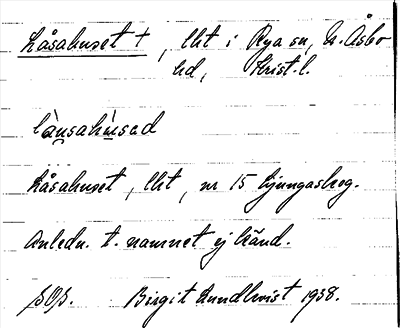 Låsahuset †, lht i Rya sn, N. Åsbo
hd, Krist. l.
Låsahuset, lht, nr 15 Ljungaskog.
Anledn. t. namnet ej känd.
Birgit Lundkvist 1938.